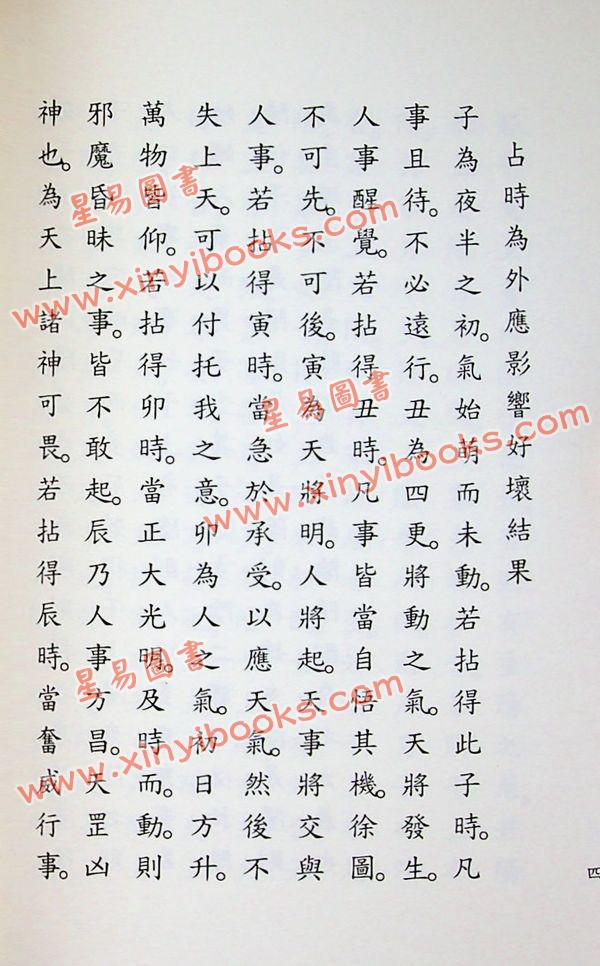 占時為外應影響好壞結果
子為夜半之初。氣始萌而未動。若拈得此子時。凡
事且待。不必遠行。丑為四更。將動之氣。天將發生。
人事醒覺。若拈得丑時。凡事皆當自悟其機。徐圖。
不可先。不可後。寅為天將明。人將起。天事將交與
人事。若拈得寅時。當急於承受。以應天氣。然後不
失上天。可以付托我之意。卯為人之氣。初日方升。
萬物皆仰。若拈得卯時。當正大光明。及時而。動。則
邪魔昏昧之事。皆不敢起。辰乃人事方昌。天罡凶
神也。為天上諸神可畏。若拈得辰時。當奮威行事。
四
星易圖書
www.xinyibooks.com
星易圖書
www.xinyibooks.com
星易圖書
www.xinyibooks.com